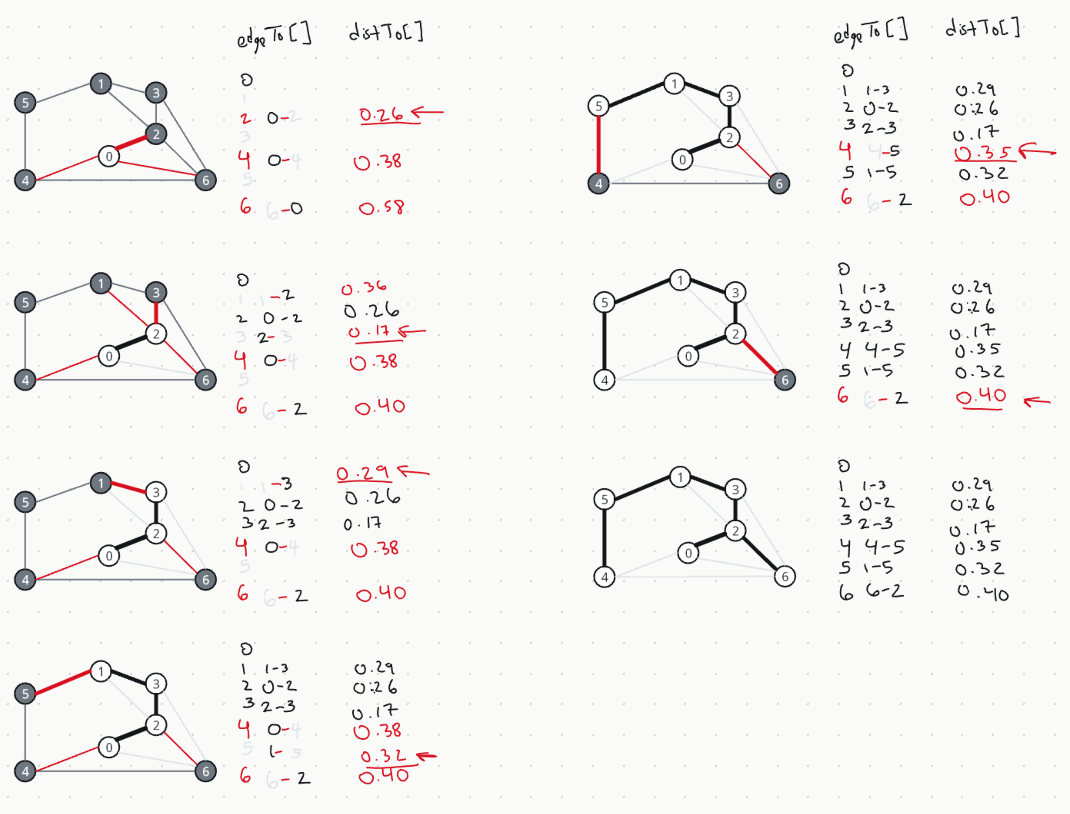 edgeTo[] distTo[]
0
1
2 0-2 0.26 ←
3
4 0-4 0.38
5
6 6-0 0.58
1
3
5
2
0
4
6
0
1 1-2 0.36
2 0-2 0.26
3 2-3 0.17 ←
4 0-4 0.38
5
6 6-2 0.40
1
3
5
2
0
4
6
0
1 1-3 0.29 ←
2 0-2 0.26
3 2-3 0.17
4 0-4 0.38
5
6 6-2 0.40
1
3
5
2
0
4
6
0
1 1-3 0.29
2 0-2 0.26
3 2-3 0.17
4 0-4 0.38
5 1-5 0.32 ←
6 6-2 0.40
1
3
5
2
0
4
6
edgeTo[] distTo[]
0
1 1-3 0.29
2 0-2 0.26
3 2-3 0.17
4 4-5 0.35 ←
5 1-5 0.32
6 6-2 0.40
1
3
5
2
0
4
6
0
1 1-3 0.29
2 0-2 0.26
3 2-3 0.17
4 4-5 0.35
5 1-5 0.32
6 6-2 0.40 ←
1
3
5
2
0
4
6
0
1 1-3 0.29
2 0-2 0.26
3 2-3 0.17
4 4-5 0.35
5 1-5 0.32
6 6-2 0.40
1
3
5
2
0
4
6